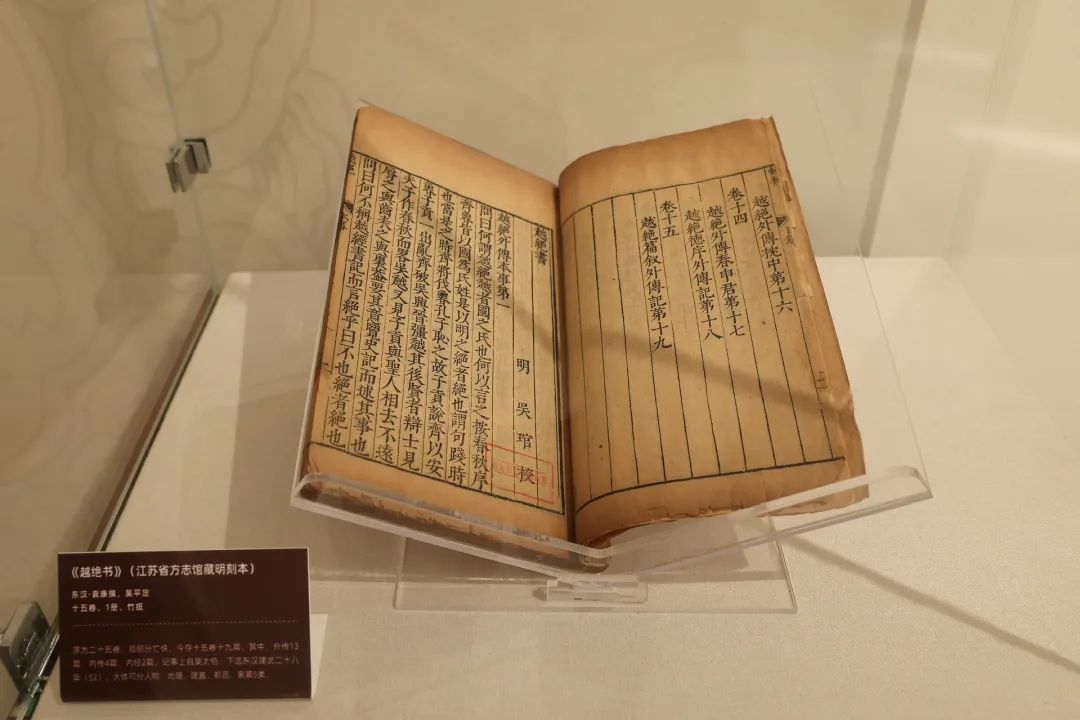 越絶外傳枕中第十六
卷十四
越絶外傳春申君第十七
越絶德序外傳記第十八
卷十五
越絶篇叙外傳記第十九
越絶書
明 吳琯 校
越絶外傳本事第一
問曰何謂越絶越者國之氏也何以言之按春秋序
齊魯皆以國爲氏姓是以明之絶者絶也謂句踐時
也當是之時齊將伐魯孔子恥之故子貢說齊以安
魯子貢一出亂齊破吳興晉彊越其後賢者辯士見
夫子作春秋而畧吳越又見子貢與聖人相去不遠
脣之與齒表之與裏蓋要其意覽史記而述其事也
問曰何不稱越經書記而言絶乎曰不也絶者絶也
《越绝书》（江苏省方志馆藏明刻本）
东汉·袁康撰，吴平定
十五卷，1册，竹纸
原为二十五卷，后部分亡佚，今存十五卷十九篇，其中，外传13
篇，内传4篇，内经2篇。记事上自吴太伯，下迄东汉建武二十八
年（52），大体可分人物、地理、建置、都邑、冢墓5类。